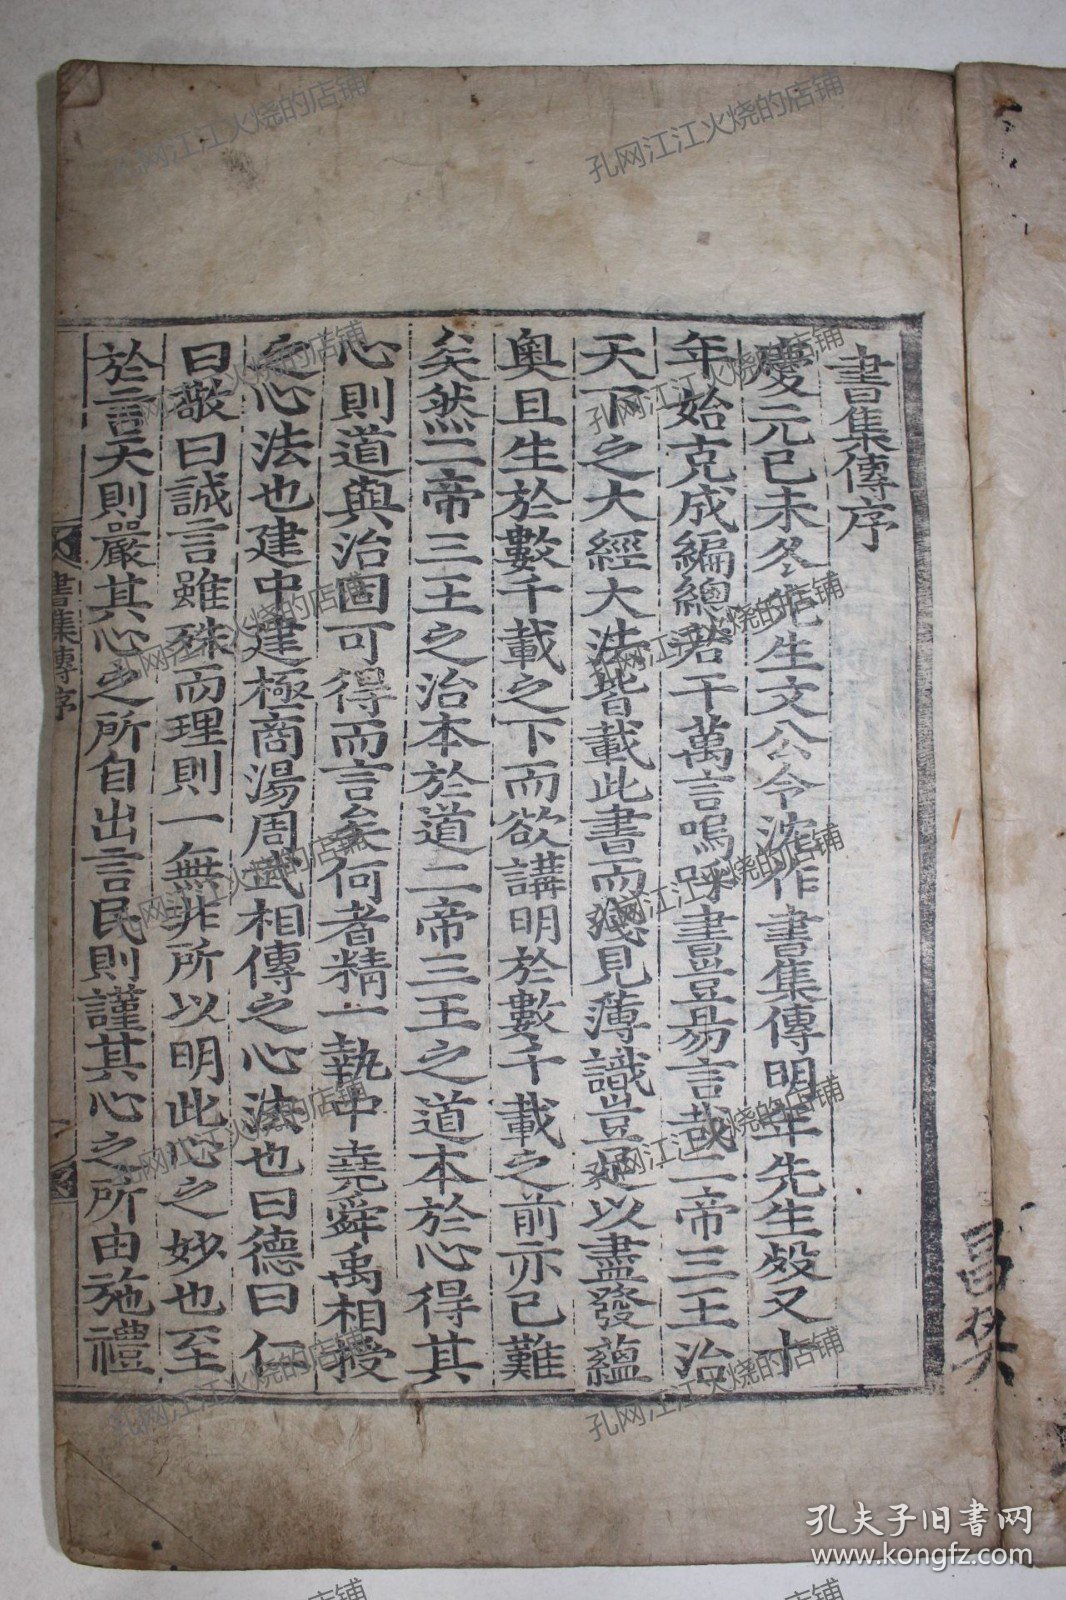 書集傳序
慶元己未冬先生文公令沈作書集傳明年先生殁又十
年始克成編總若干萬言嗚呼書豈易言哉二帝三王治
天下之大經大法皆載此書而淺見薄識豈足以盡發蘊
奧且生於數千載之下而欲講明於數千載之前亦已難
矣然二帝三王之治本於道二帝三王之道本於心得其
心則道與治固可得而言矣何者精一執中堯舜禹相授
之心法也建中建極商湯周武相傳之心法也曰德曰仁
曰敬曰誠言雖殊而理則一無非所以明此心之妙也至
於言天則嚴其心之所自出言民則謹其心之所由施禮
書集傳序
孔网江江火烧的店铺
孔夫子旧书网
www.kongfz.com